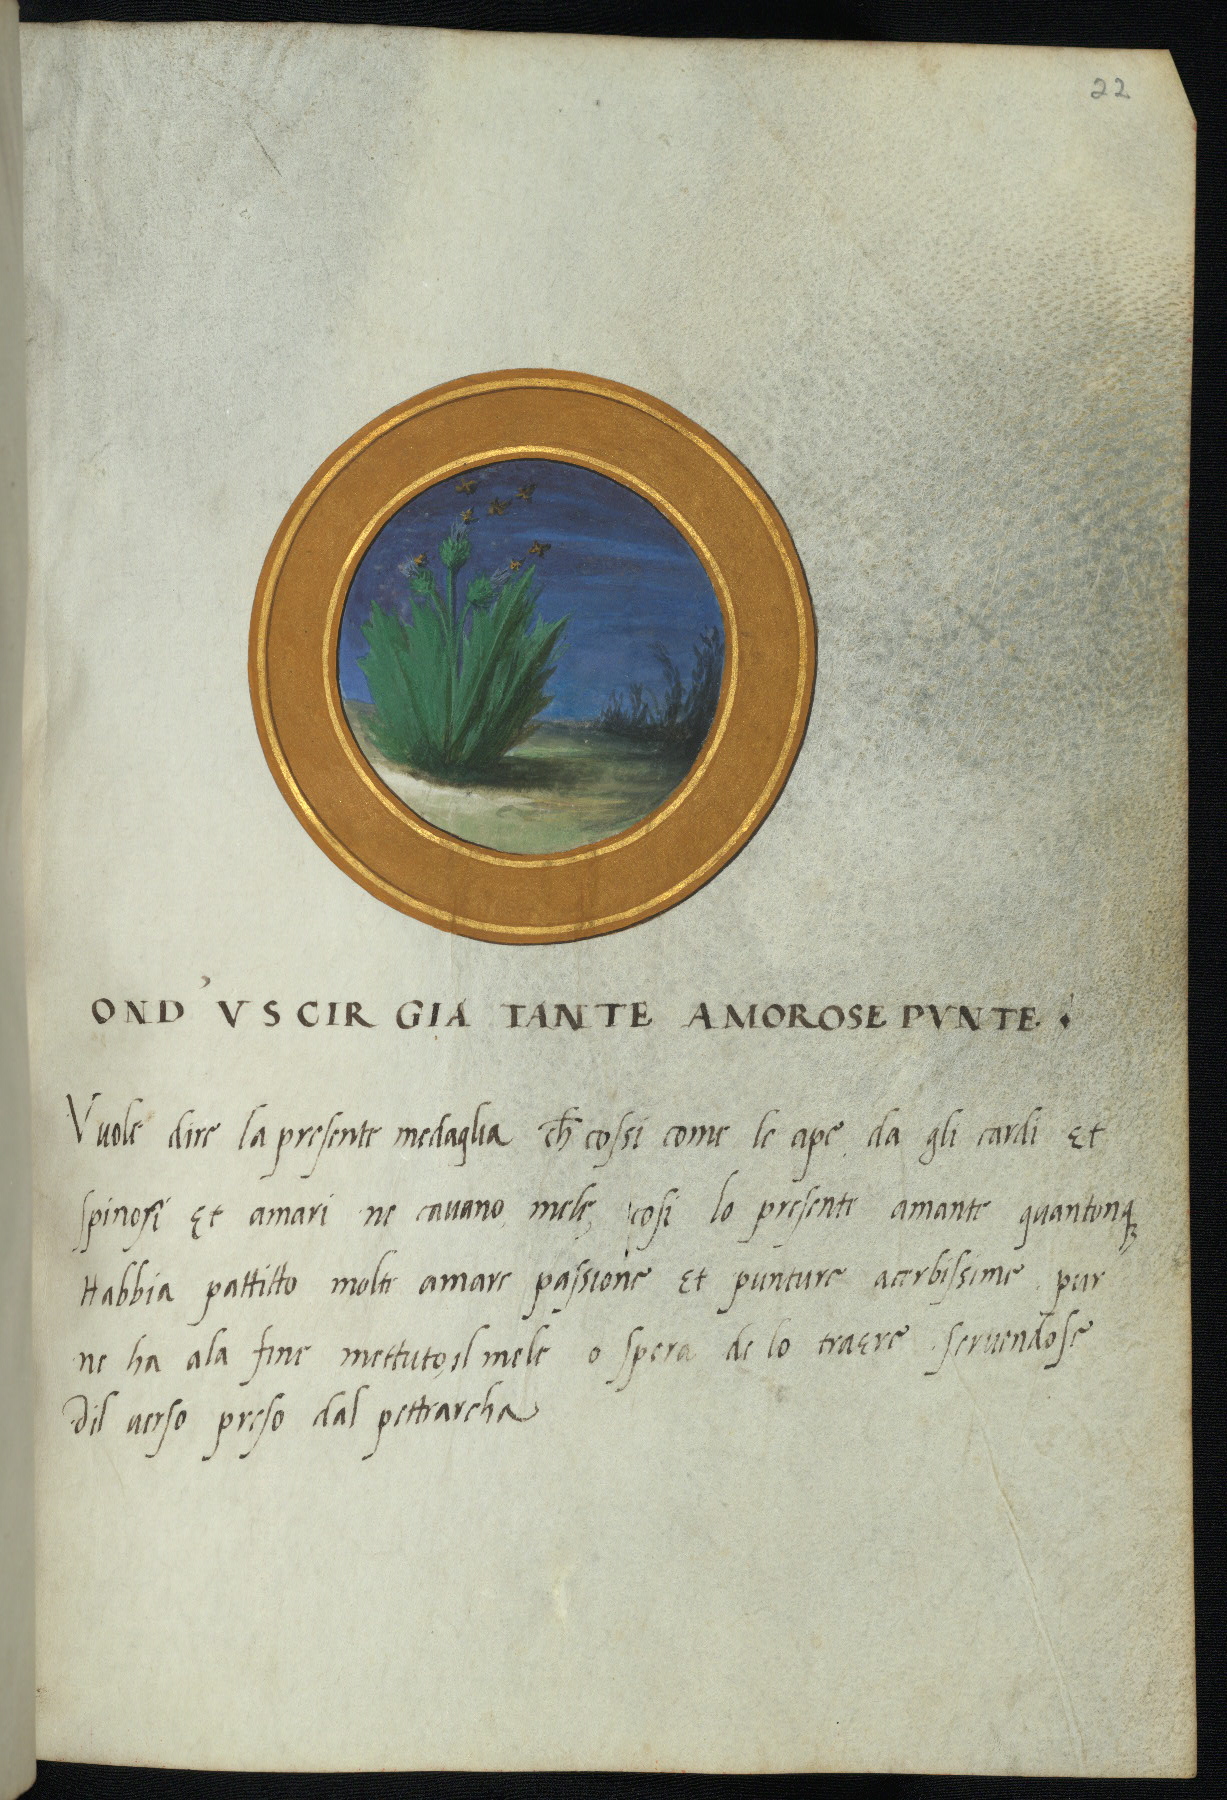 22
OND' VSCIR GIA TANTE AMOROSE PVNTE.
Vuole dire la presente medaglia ch̄ cossi come le ape da gli cardi et
spinosi et amari ne cauano mele, cosi lo presente amante quantonq
Habbia pattitto molte amare passione et punture acerbissime pur
ne ha ala fine mettuto il mele o spera de lo traere seruendose
dil uerso preso dal pettrarcha